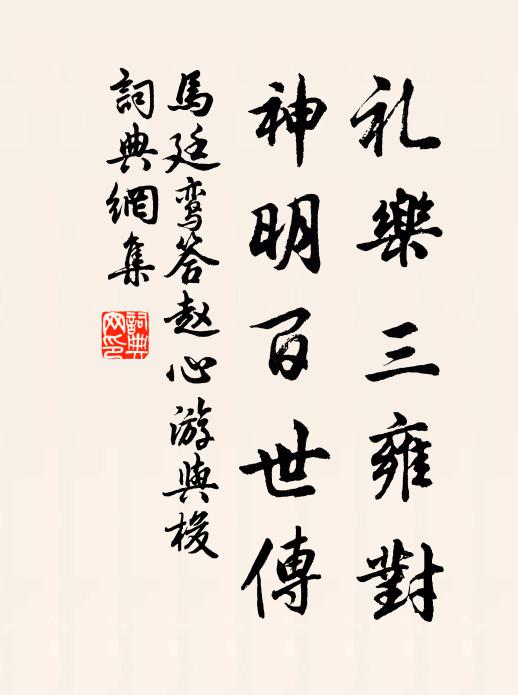 礼樂三雍對
神明百世傳
馬廷鸾答赵心游與梭
詞典網集
詞典网印